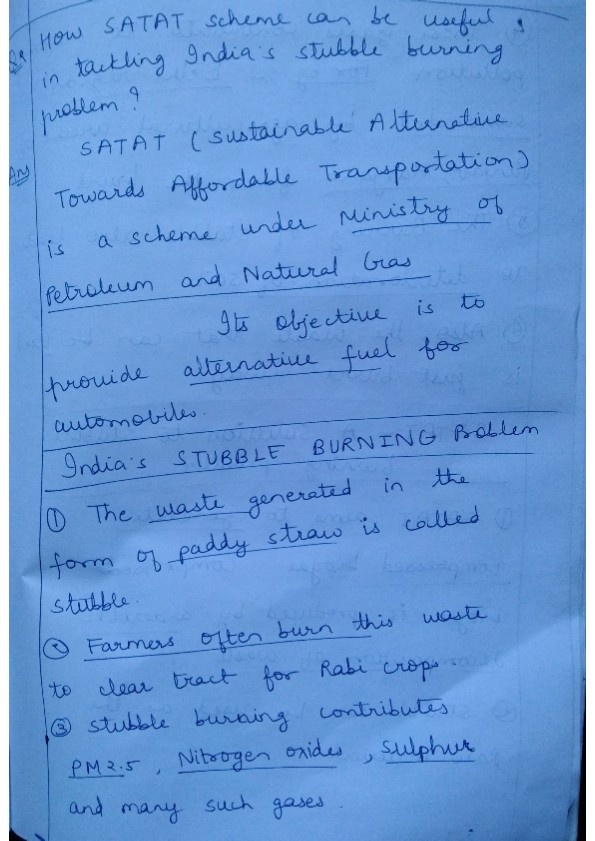 Q. How SATAT scheme can be useful,
in tackling India's stubble burning
problem?
Ans SATAT (Sustainable Alternative
Towards Affordable Transportation)
is a scheme under Ministry of
Petroleum and Natural Gas
Its objective is to
provide alternative fuel for
automobiles.
India's STUBBLE BURNING Problem
① The waste generated in the
form of paddy straw is called
stubble.
② Farmers often burn this waste
to clear tract for Rabi crops.
③ stubble burning contributes
PM2.5, Nitrogen oxides, Sulphur
and many such gases.